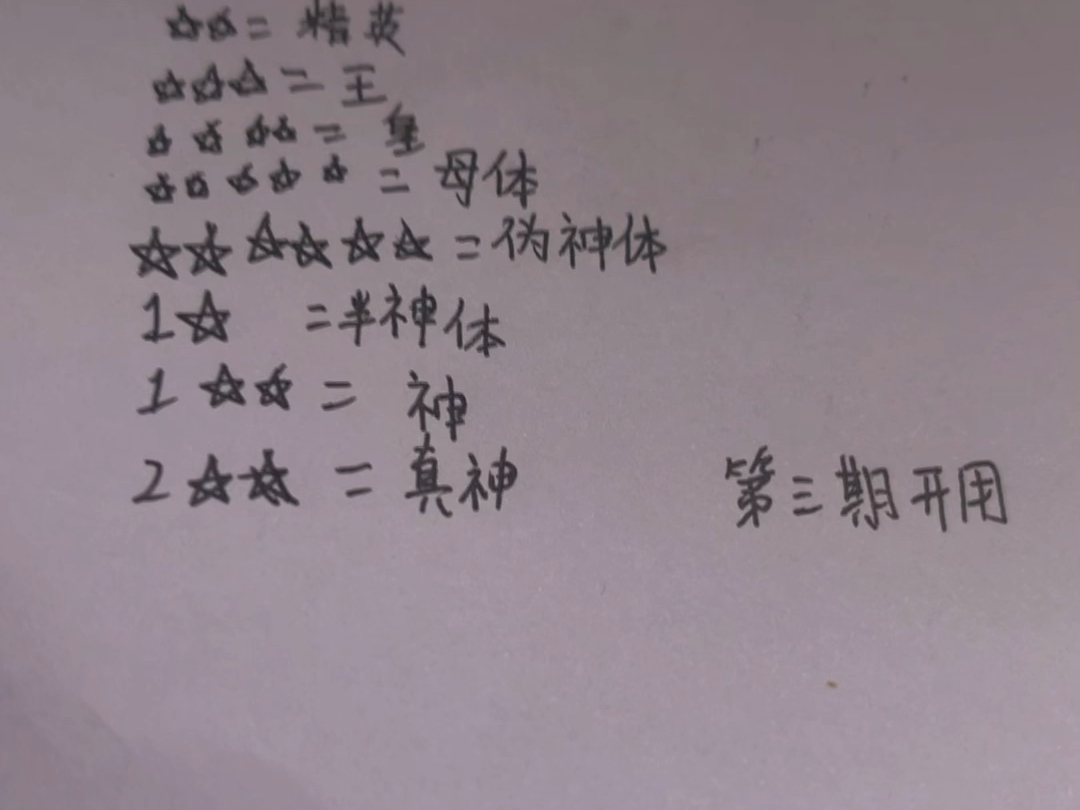 ☆☆=精英
☆☆☆=王
☆☆☆☆=皇
☆☆☆☆☆=母体
☆☆☆☆☆☆=伪神体
1☆ =半神体
1☆☆=神
2☆☆=真神 第三期开用